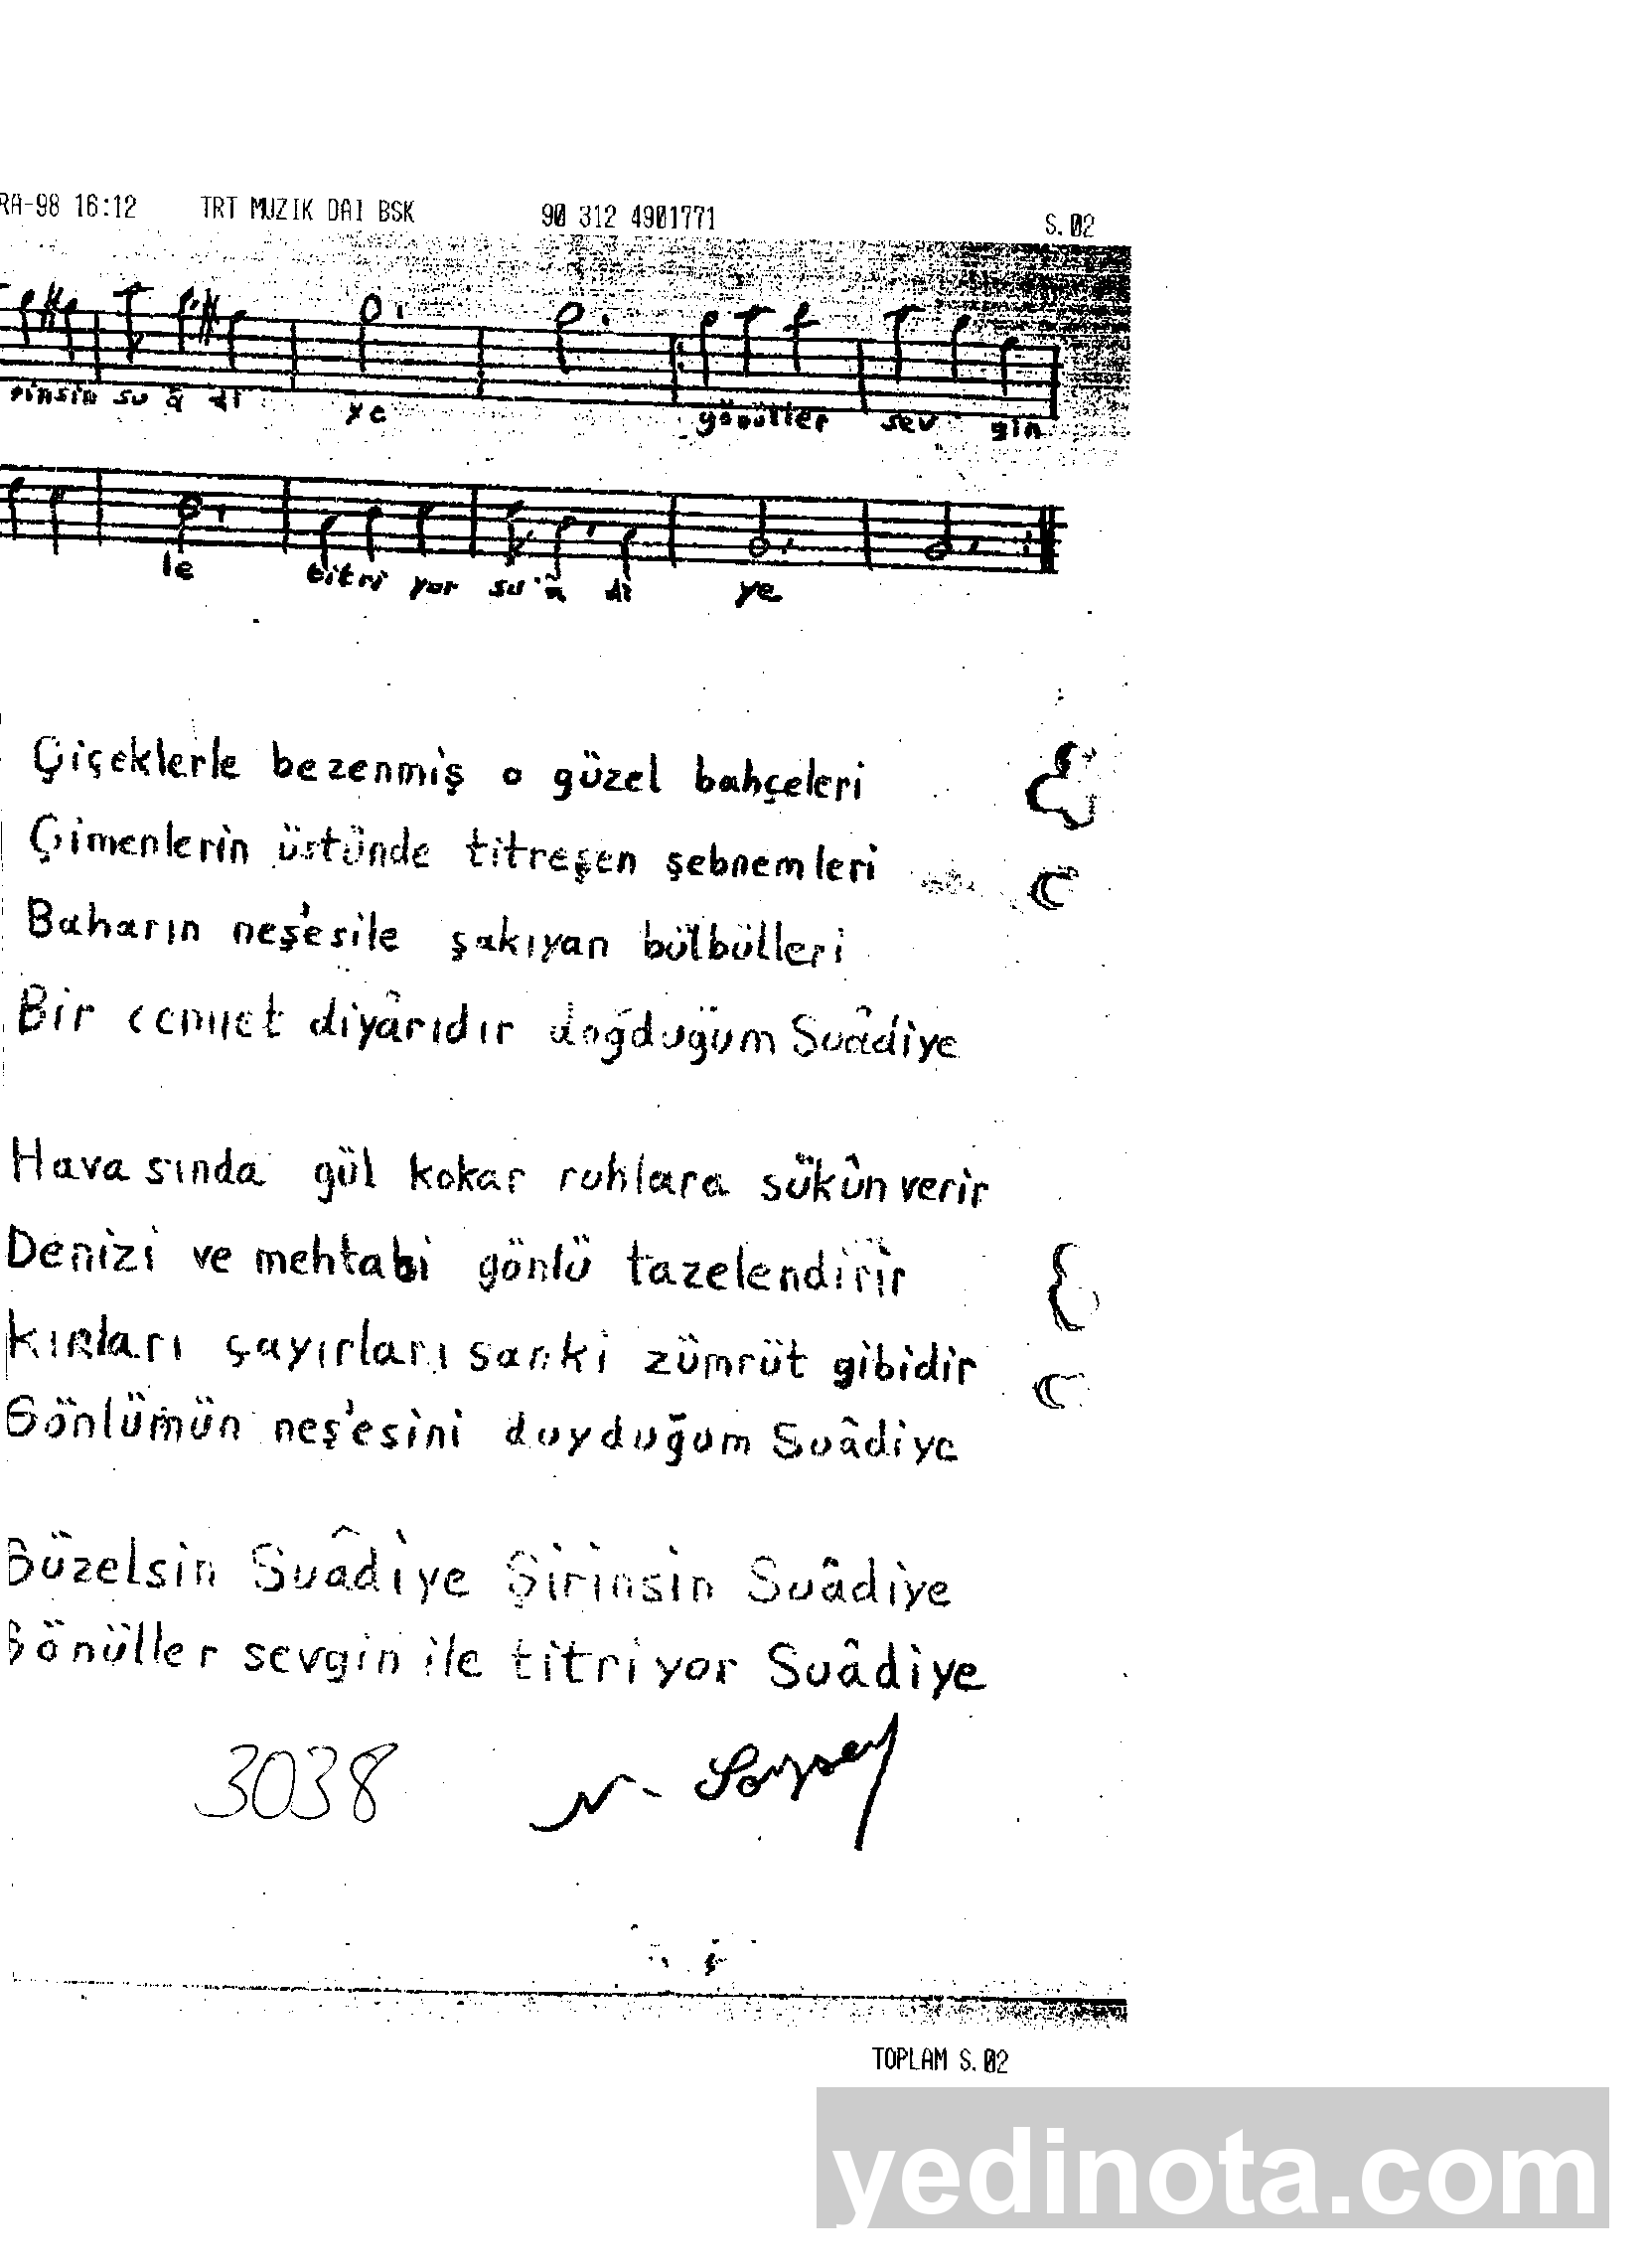 RA-98 16:12 TRT MUZIK DAI BSK 90 312 4901771 S.02
rinsin su â di ye gönüller sev gin
le titri yor su â di ye
Çiçeklerle bezenmiş o güzel bahçeleri
Çimenlerin üstünde titreşen şebnemleri
Baharın neş'esile şakıyan bülbülleri
Bir cennet diyârıdır doğduğum Suâdiye
Havasında gül kokar ruhlara sükûn verir
Denizi ve mehtabı gönlü tazelendirir
Kırları çayırları sanki zümrüt gibidir
Gönlümün neş'esini duyduğum Suâdiye
Güzelsin Suâdiye Şirinsin Suâdiye
Gönüller sevgin ile titriyor Suâdiye
3038
TOPLAM S.02
yedinota.com